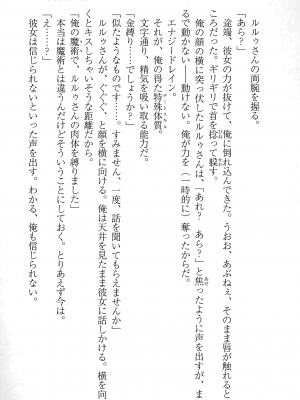 ルルゥさんの両腕を握る。
「あら?」
途端、彼女の力が抜けて、俺に倒れ込んできた。うおお、あぶねぇ、そのまま唇が触れると
ころだった。ギリギリで首を捻って躱す。
俺の顔の横に突っ伏したルルゥさんは、「あれ? あら?」と焦ったように声を出すが、ま
るで動かない――動けない。俺が力を(一時的に)奪ったからだ。
エナジードレイン。
それが、俺の得た特殊体質。
文字通り、精気を吸い取る能力だ。
「金縛り……でしょうか?」
「似たようなものです……すみません、一度、話を聞いてもらえませんか」
ルルゥさんが、ぐぐ、と顔を横に向ける。俺は天井を見たまま彼女に話しかける。横を向
くとキスしちゃいそうな距離だから。
「俺の魔術で、ルルゥさんの肉体を縛りました」
本当は魔術とは違うんだけどそういうことにしておく。とりあえず今は。
彼女は信じられないといった声を出す。わかる、俺も信じられない。